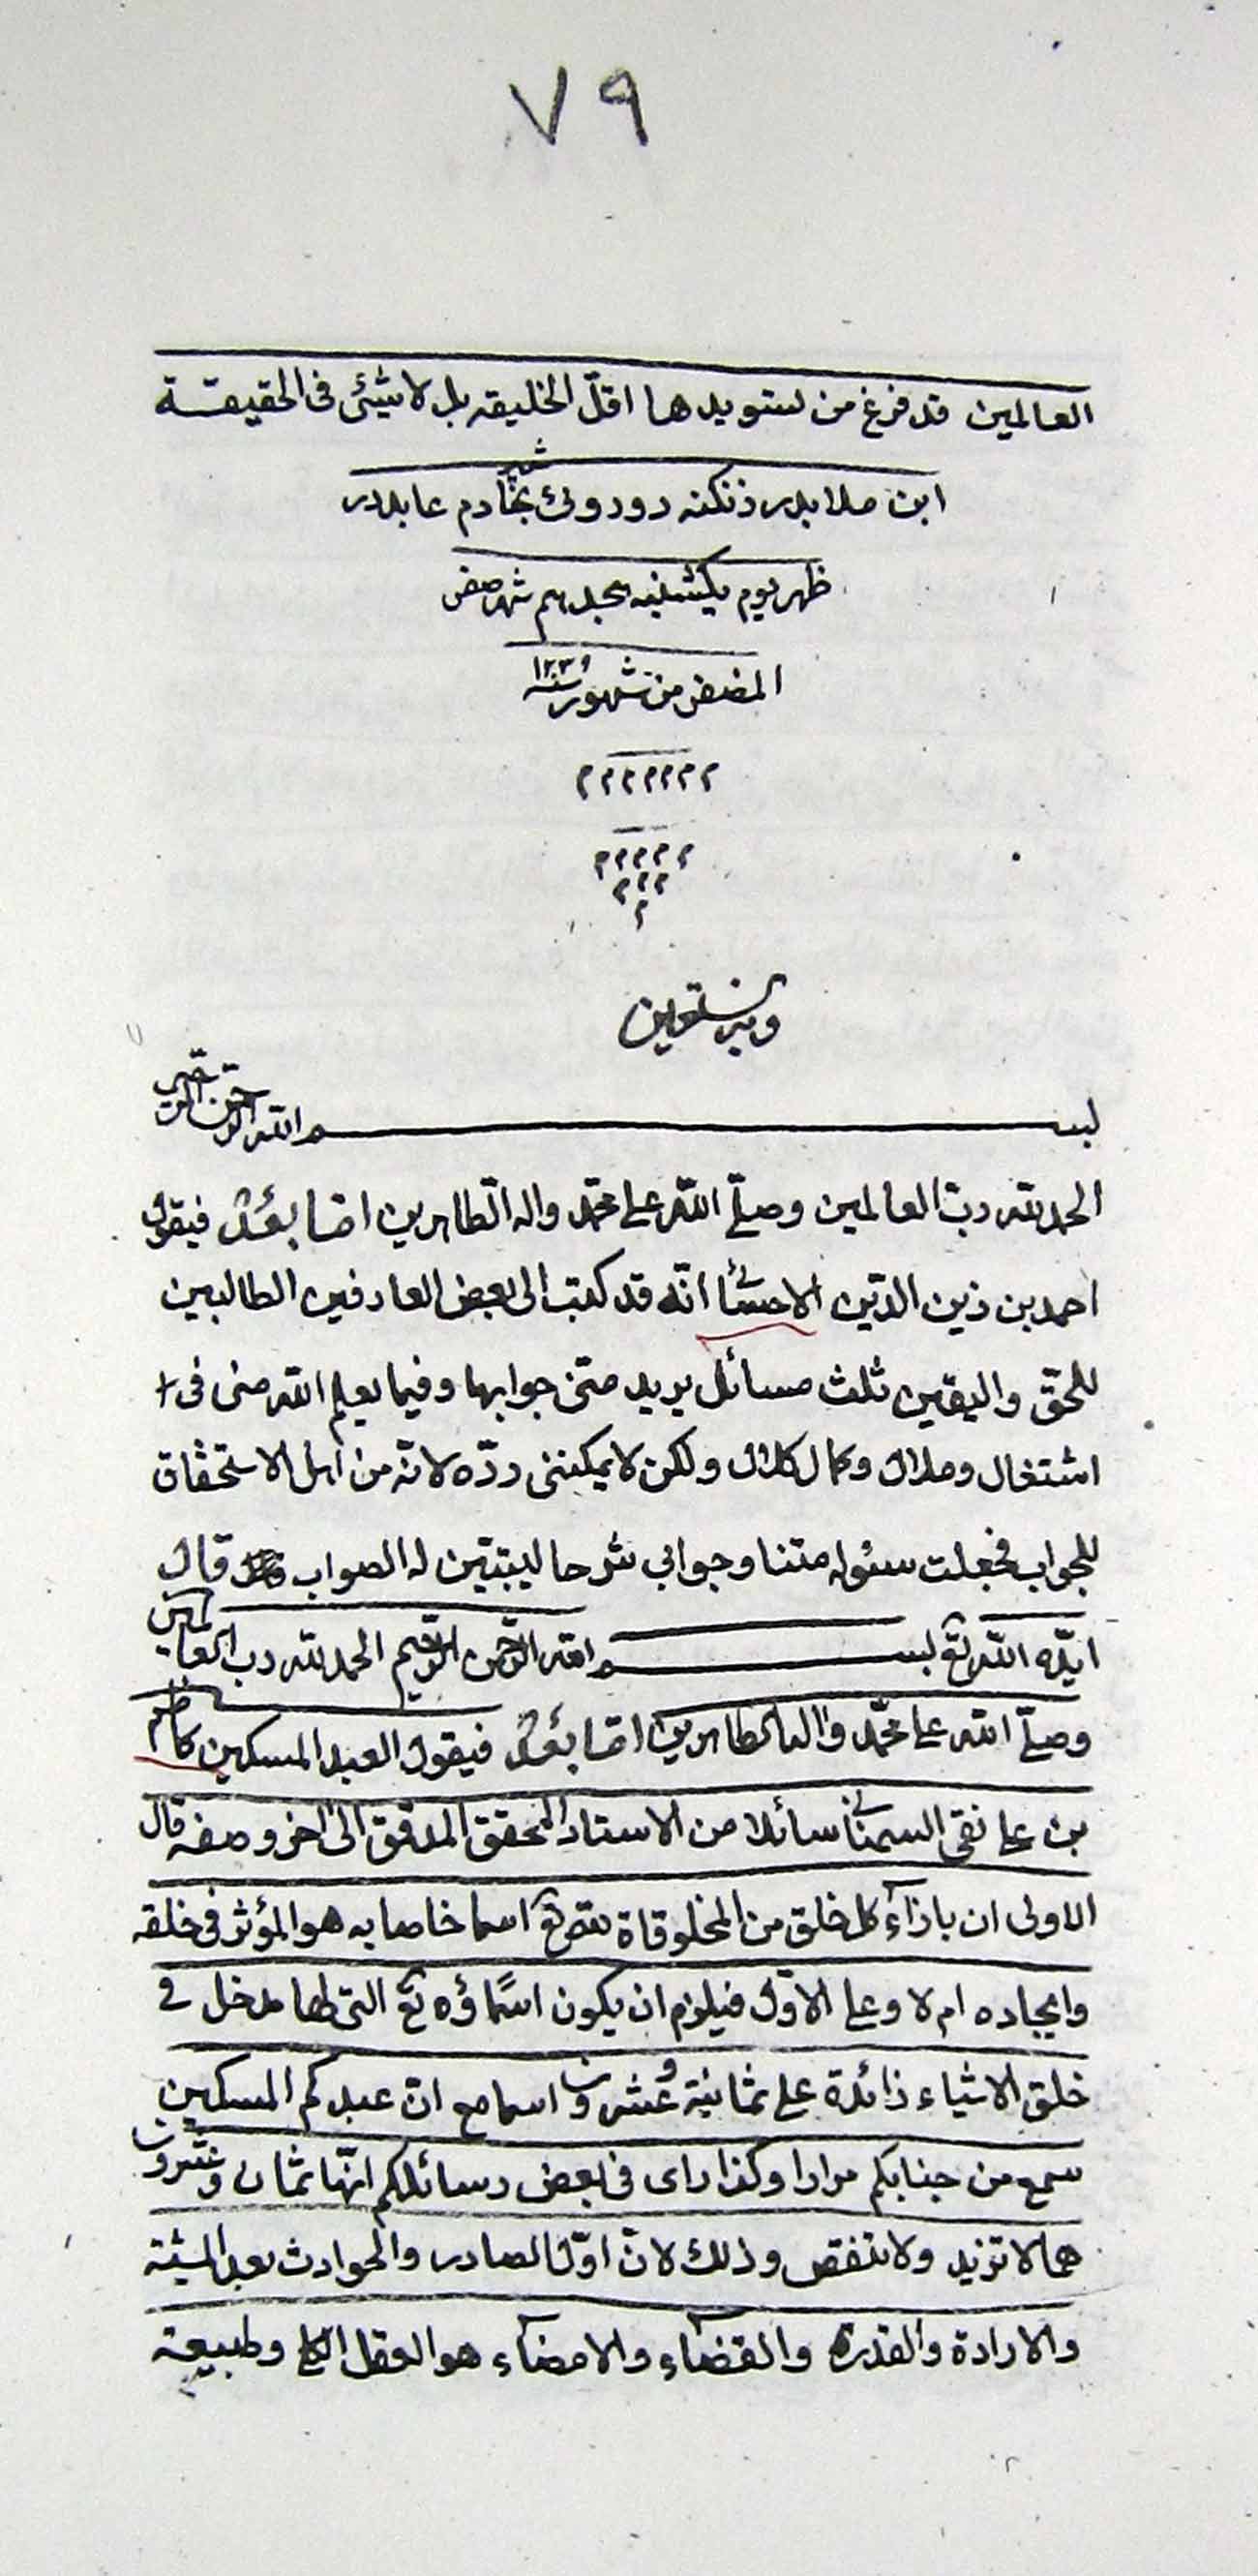 ٧٩
العالمين قد فرغ من تسويدها اقلّ الخليقه بل لا شيئ فى الحقيقــة
ابن ملا بدر
ظهر يوم يكشنبه هجدهم شهر صفر
المضفر من شهور سنه ١٢٣٩
وبه نستعين
بسم الله الرّحمن الرّحيم
الحمد لله ربّ العالمين وصلّى الله على محمّد واله الطّاهرين امّا بعد فيقول
احمد بن زين الدّين الاحسائى انّه قد كتب الى بعض العارفين الطالبين
للحقّ واليقين ثلث مسائل يريد منّى جوابها وفيما يعلم الله منى فى
اشتغال وملال وكمال كلال ولكن لا يمكننى ردّه لانّه من اهل الاستحقاق
للجواب فجعلت سئوله متنا وجوابي شرحا ليتبيّن له الصواب قال
ايّده الله تع بسم الله الرّحمن الرّحيم الحمد لله رب العالمين
وصلّى الله على محمّد واله الطاهرين امّا بعد فيقول العبد المسكين كاظم
بن على نقى السمنانى سائلا من الاستاد المحقق المدقق الى اخر وصفه قال
الاولى ان بازآء كل خلق من المخلوقاة لله تع اسما خاصا به هو المؤثر فى خلقه
وايجاده ام لا وعلى الاوّل فيلزم ان يكون اسماؤه تع التى لها مدخل فى
خلق الاشياء زائدة على ثمانية وعشرون اسما مع انّ عبدكم المسكين
سمع من جنابكم مرارا وكذا راى فى بعض رسائلكم انّها ثمان وعشرون
هما لا تزيد ولا تنقص وذلك لانّ اوّل الصادر والحوادث بعد المشيّة
والارادة والقدرة والقضاء والامضاء هو العقل الكلى وطبيعة